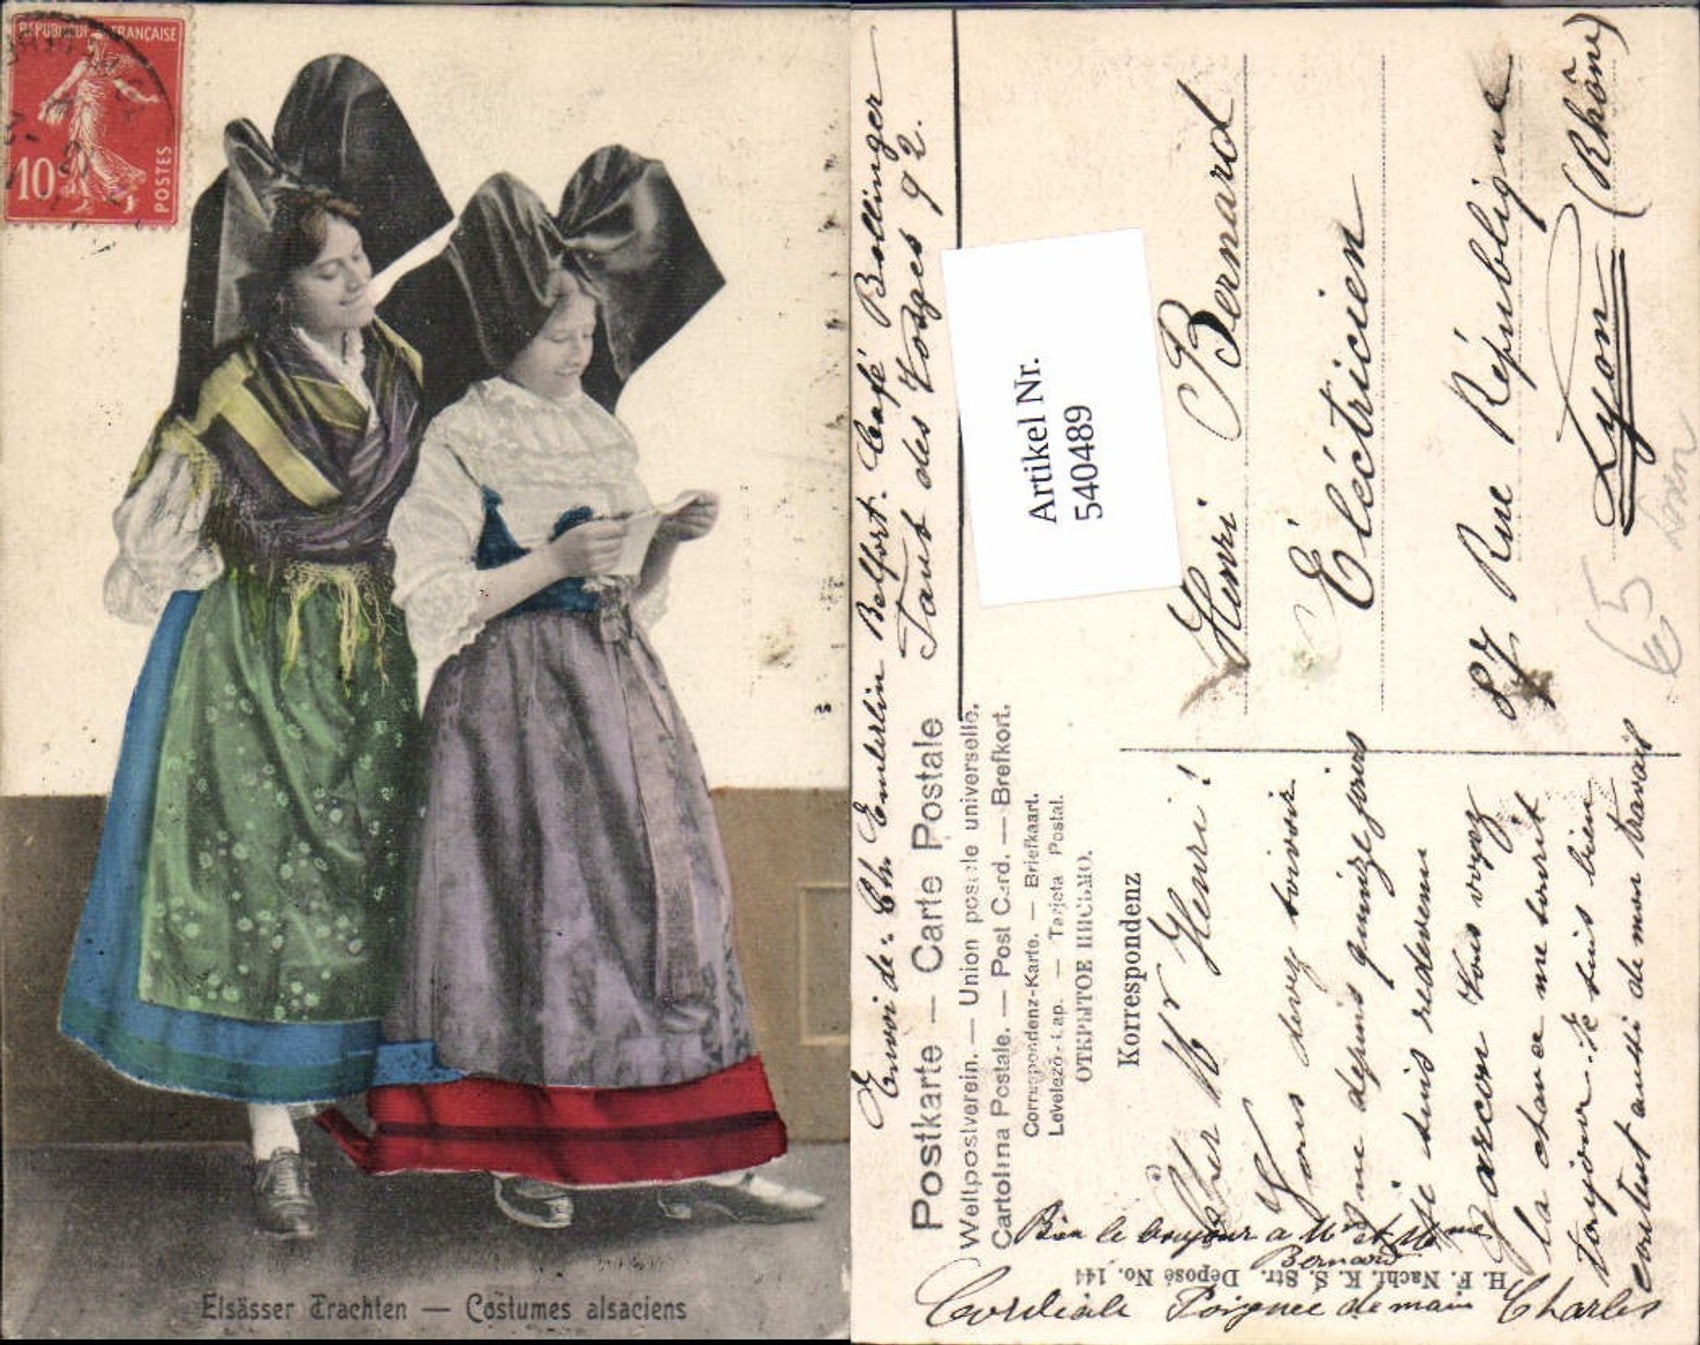 RÉPUBLIQUE FRANÇAISE
10c
POSTES
Elsässer Trachten — Costumes alsaciens
Envoi de: Ch. Enderlin Belfort. Café Bollinger
Faub des Vosges 92.
Postkarte — Carte Postale
Weltpostverein. — Union postale universelle.
Cartolina Postale. — Post Card. — Brefkort.
Correspondenz-Karte. — Briefkaart.
Levelező-Lap. — Tarjeta Postal.
ОТКРЫТОЕ ПИСЬМО.
Korrespondenz
Artikel Nr.
540489
Cher Mr Henri!
Vous devez savoir
que depuis quinze jours
je suis redevenu
garçon Vous voyez
la chance me sourit
toujour. Je suis bien
content aussi de mon travail
Bien le bonjour a Mr et Mme
Bernard
Cordiale Poignée de main Charles
Henri Bernard
Eléctricien
87 Rue République
Lyon (Rhône)
65
H. F. Nachf. K. S. Str. Déposé No. 144